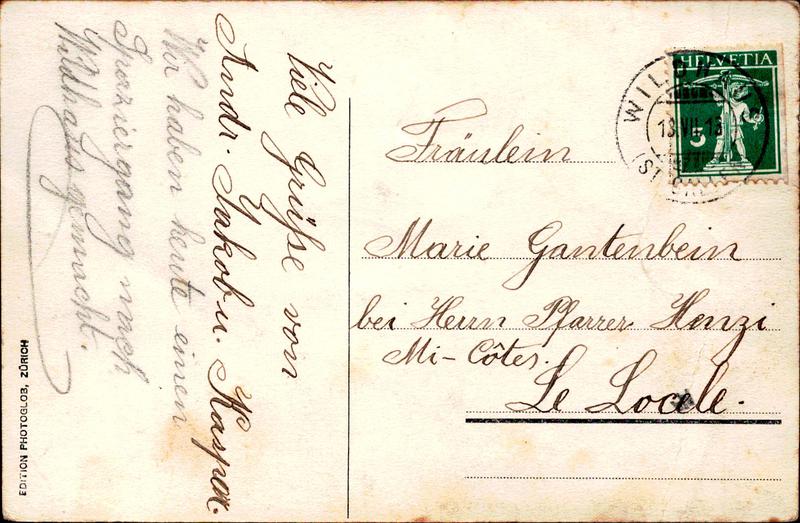 Viele Grüße von
Andr. Jakob u. Kaspar.
Wir haben heute einen
Spaziergang nach
Wildhaus gemacht.
EDITION PHOTOGLOB, ZÜRICH
HELVETIA
5
WILDHAUS
13.VII.13
(ST. GALLEN)
Fräulein
Marie Gantenbein
bei Herrn Pfarrer Henzi
Mi-Côtes.
Le Locle.